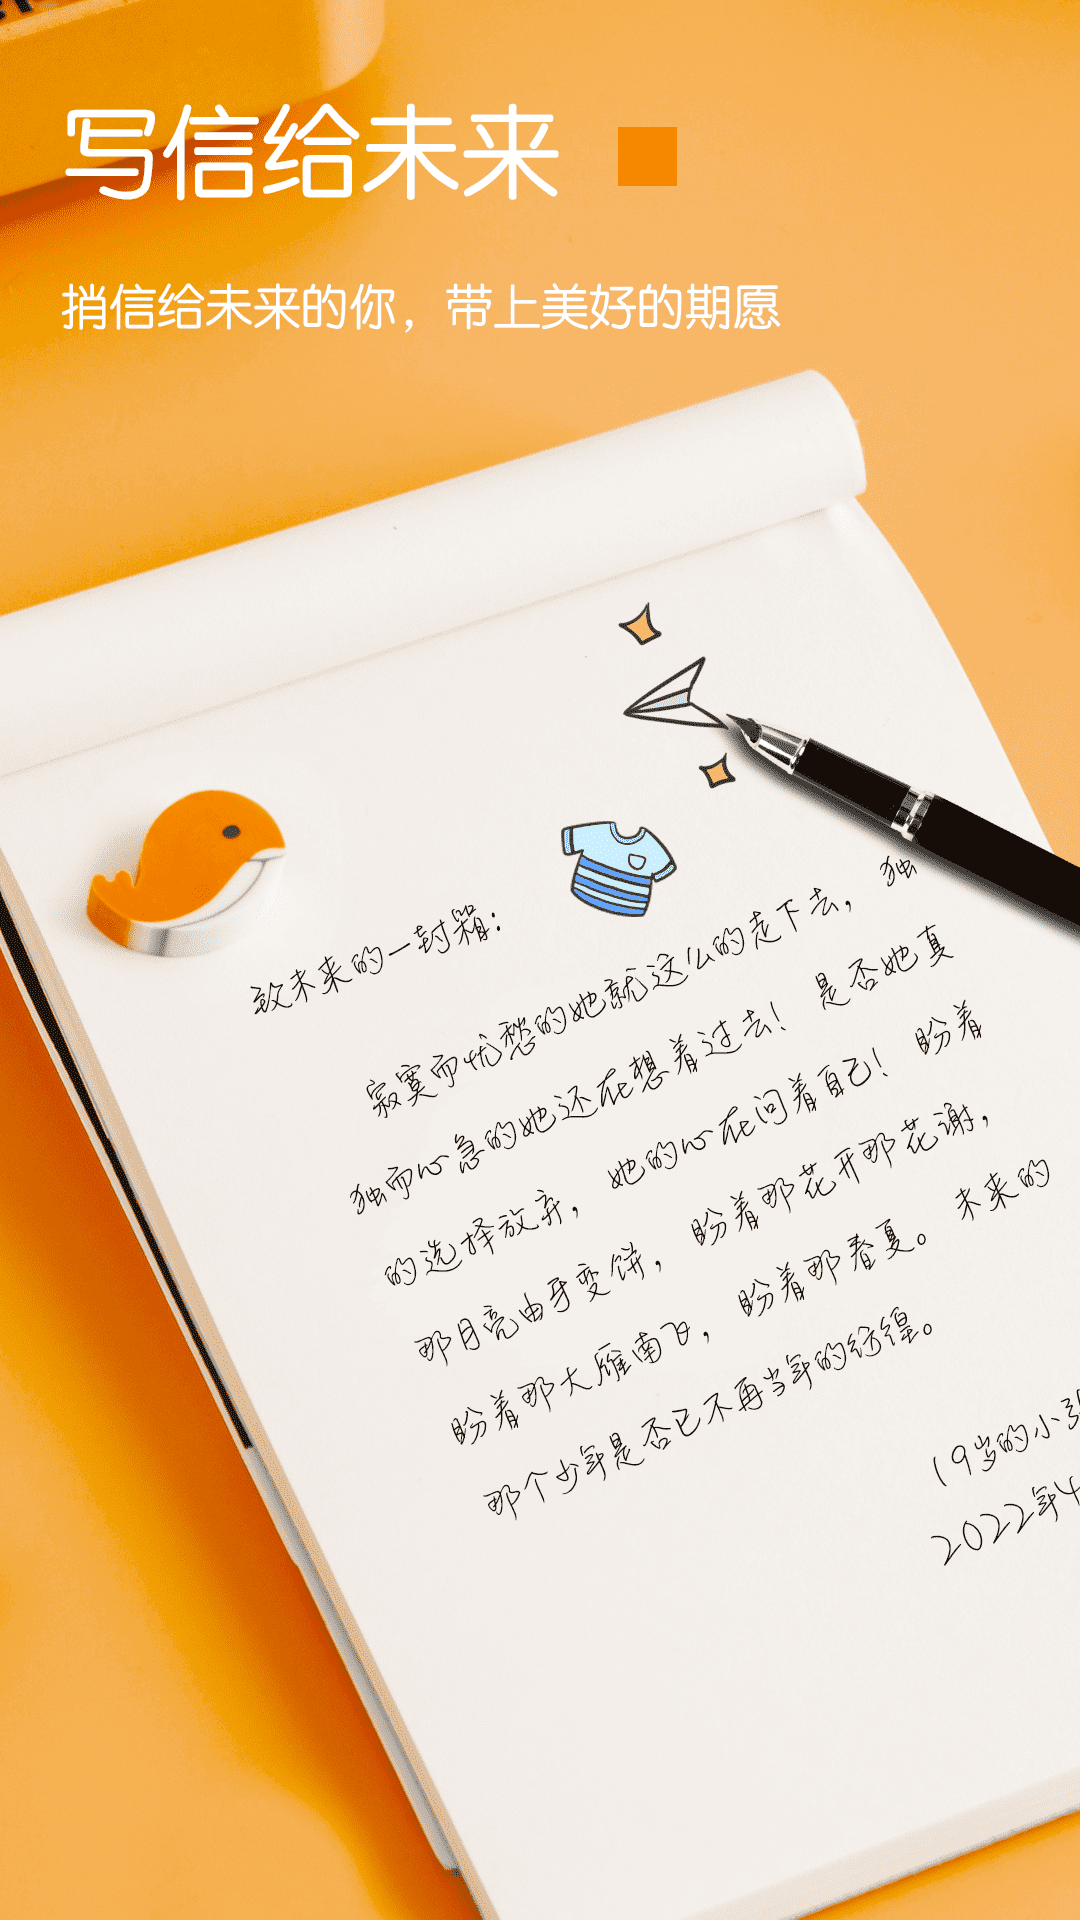 写信给未来
捎信给未来的你，带上美好的期愿
致未来的一封箱：
寂寞而忧愁的她就这么的走下去，独
独而心急的她还在想着过去！是否她真
的选择放弃，她的心在问着自己！盼着
那月亮由牙变饼，盼着那花开那花谢，
盼着那大雁南飞，盼着那春夏。未来的
那个少年是否已不再当年的彷徨。
19岁的小张
2022年4